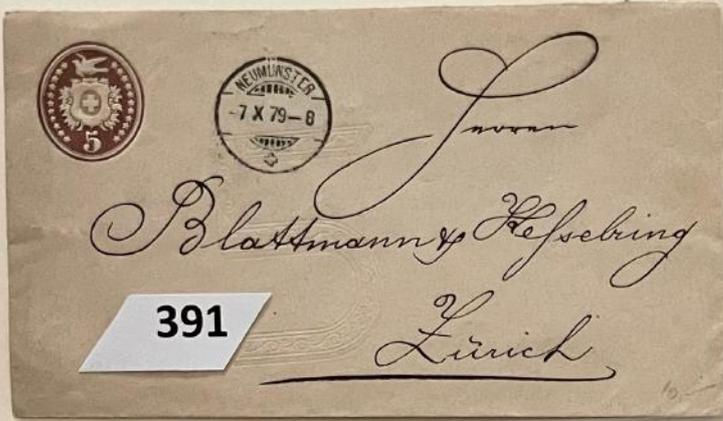 5
NEUMÜNSTER
-7 X 79-8
Herren
Blattmann & Hesselring
Zürich
391
10.-